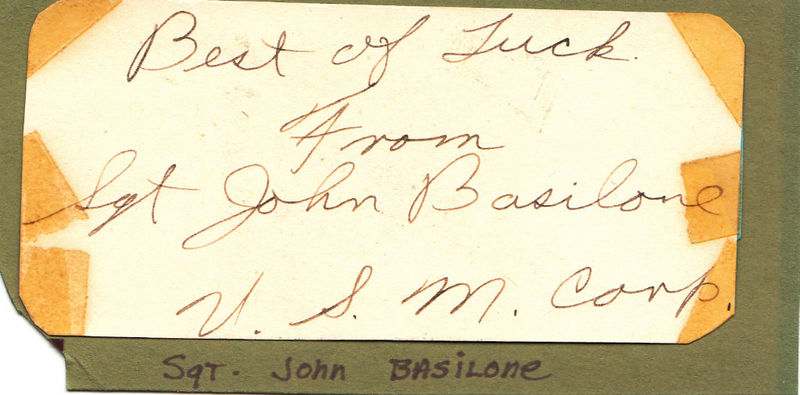 Best of Luck.
From
Sgt John Basilone
U. S. M. Corp.
Sgt. John BASILONE